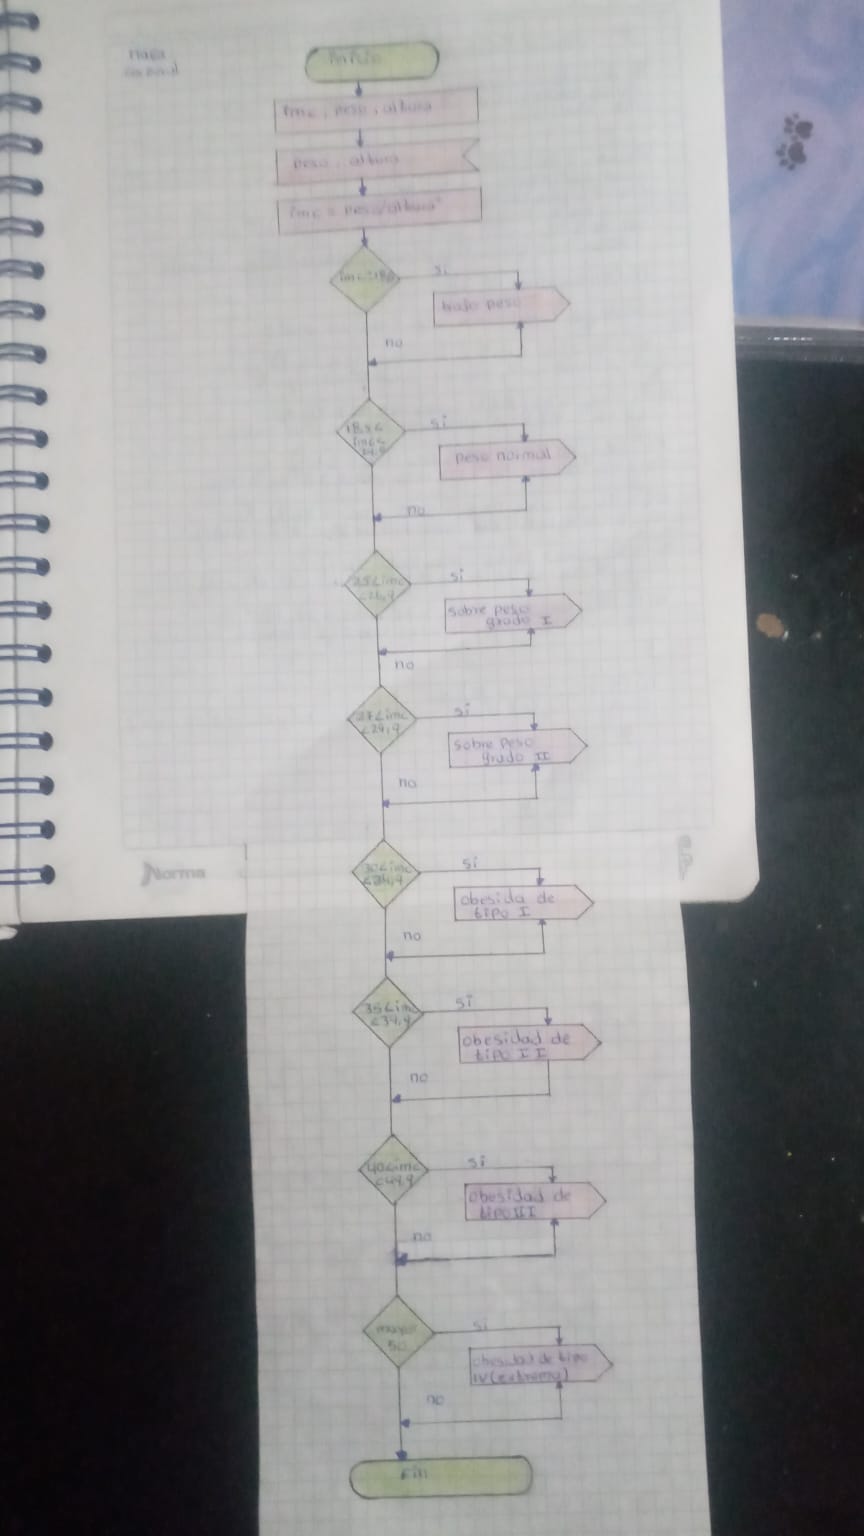 masa
corporal
inicio
imc, peso, altura
peso, altura
imc = peso/altura²
si
bajo peso
no
18,5<
imc<
24,9
si
peso normal
no
25<imc
<26,9
si
sobre peso
grado I
no
27<imc
<29,9
si
sobre peso
grado II
no
30<imc
<34,9
si
obesida de
tipo I
no
Norma
35<imc
<39,9
si
obesidad de
tipo II
no
40<imc
<49,9
si
obesidad de
tipo III
no
mayor
50
si
obesidad de tipo
IV (extrema)
no
Fin